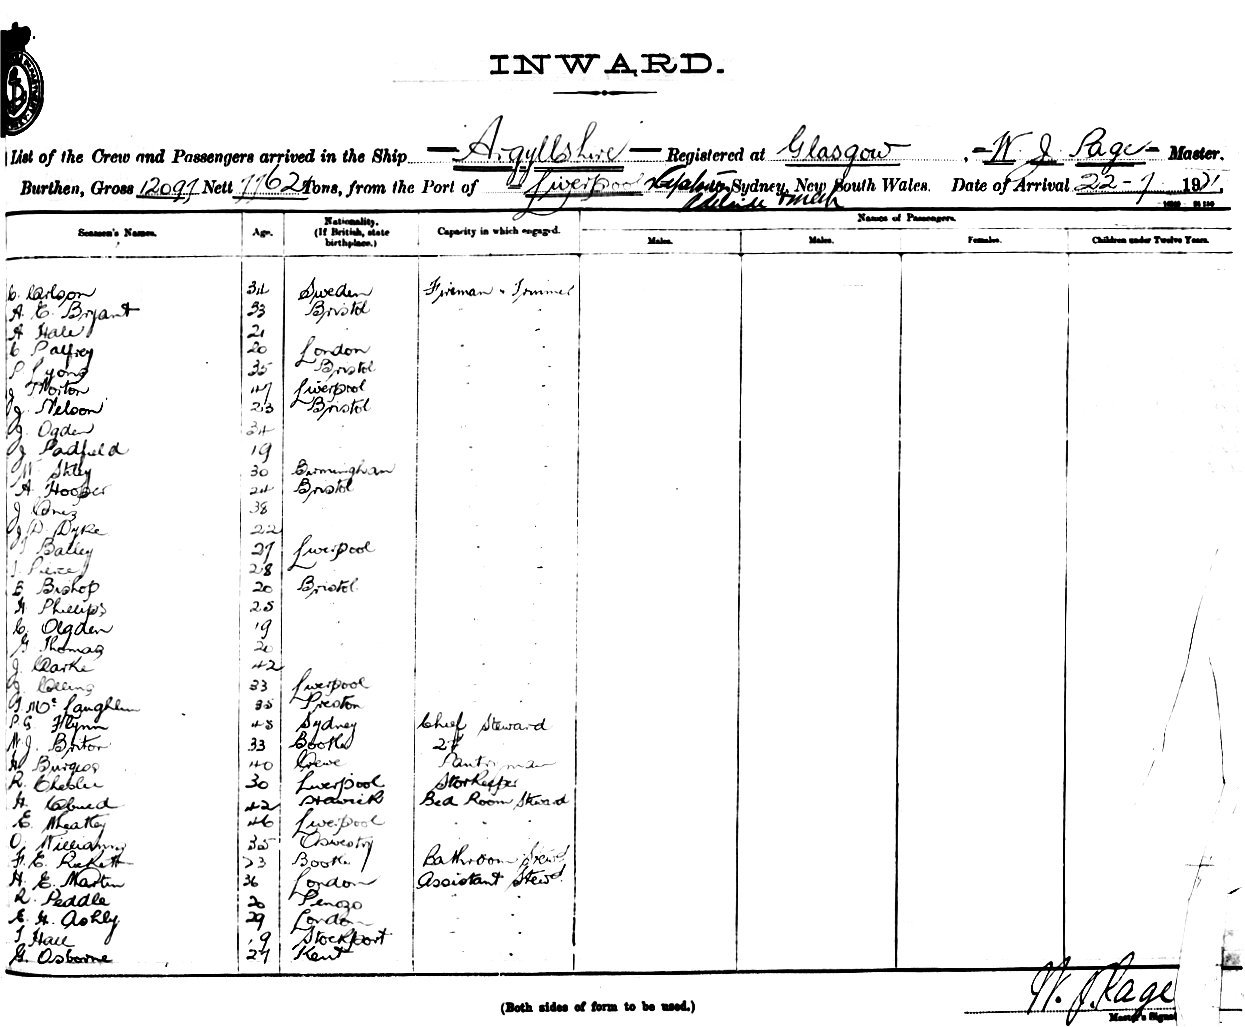 INWARD.
List of the Crew and Passengers arrived in the Ship — Argyllshire — Registered at Glasgow, – W. J. Page – Master.
Burthen, Gross 12097 Nett 7762 Tons, from the Port of Liverpool Sydney, New South Wales. Date of Arrival 22-7 1921,
Adelaide
Names of Passengers.
Seamen's Names. Age. Nationality. (If British, state birthplace.) Capacity in which engaged. Males. Males. Females. Children under Twelve Years.
C. Carlson 34 Sweden Fireman & Trimmer
A. E. Bryant 33 Bristol " "
A Hale 21 " " "
C Palfrey 20 London " "
P Lyons 35 Bristol " "
J Morton 47 Liverpool " "
J. Nelson 23 Bristol " "
J. Ogden 34 " " "
J Padfield 19 " " "
W 30 Birmingham " "
A Hooper 24 Bristol " "
J 38 " " "
J. D. Dyke 22 " " "
T Bailey 27 Liverpool " "
J. Pierce 28 " " "
E Bishop 20 Bristol " "
H Phillips 25 " " "
C. Ogden 19 " " "
G Thomas 20 " " "
J. Clarke 42 " " "
J. Collins 33 Liverpool " "
J McLaughlin 35 Preston " "
P. G Flynn 48 Sydney Chief Steward
W. J. Briton 33 Bootle 2d "
H Burgess 40 Crewe Pantryman
R. Chester 30 Liverpool Storekeeper
H. 42 Bed Room Steward
E. Wheatley 46 Liverpool " "
O. Williams 35 Oswestry " "
F. E. Rickett 23 Bootle Bathroom Stewd
H. E. Martin 36 London Assistant Stewd
R. Peddle 20 " "
E. H. Ashly 29 London " "
T Hall 19 Stockport " "
G. Osborne 27 Kent " "
W. J. Page
(Both sides of form to be used.) Master's Signat